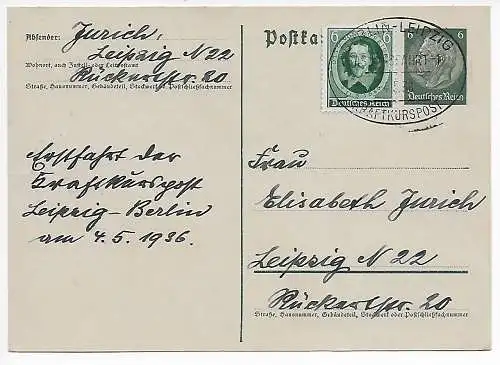 Absender: Jurich,
Leipzig N 22
Wohnort, auch Zustell- oder Leitpostamt
Rückertstr. 20
Straße, Hausnummer, Gebäudeteil, Stockwerk od. Postschließfachnummer
Erstfahrt der
Kraftkurspost
Leipzig-Berlin
am 4.5.1936.
Postka
6 6
Deutsches Reich
6 6
Deutsches Reich
LIN-LEIPZIG
KRAFTKURSPOST
Frau
Elisabeth Jurich
Leipzig N 22
Rückertstr. 20
Straße, Hausnummer, Gebäudeteil, Stockwerk oder Postschließfachnummer